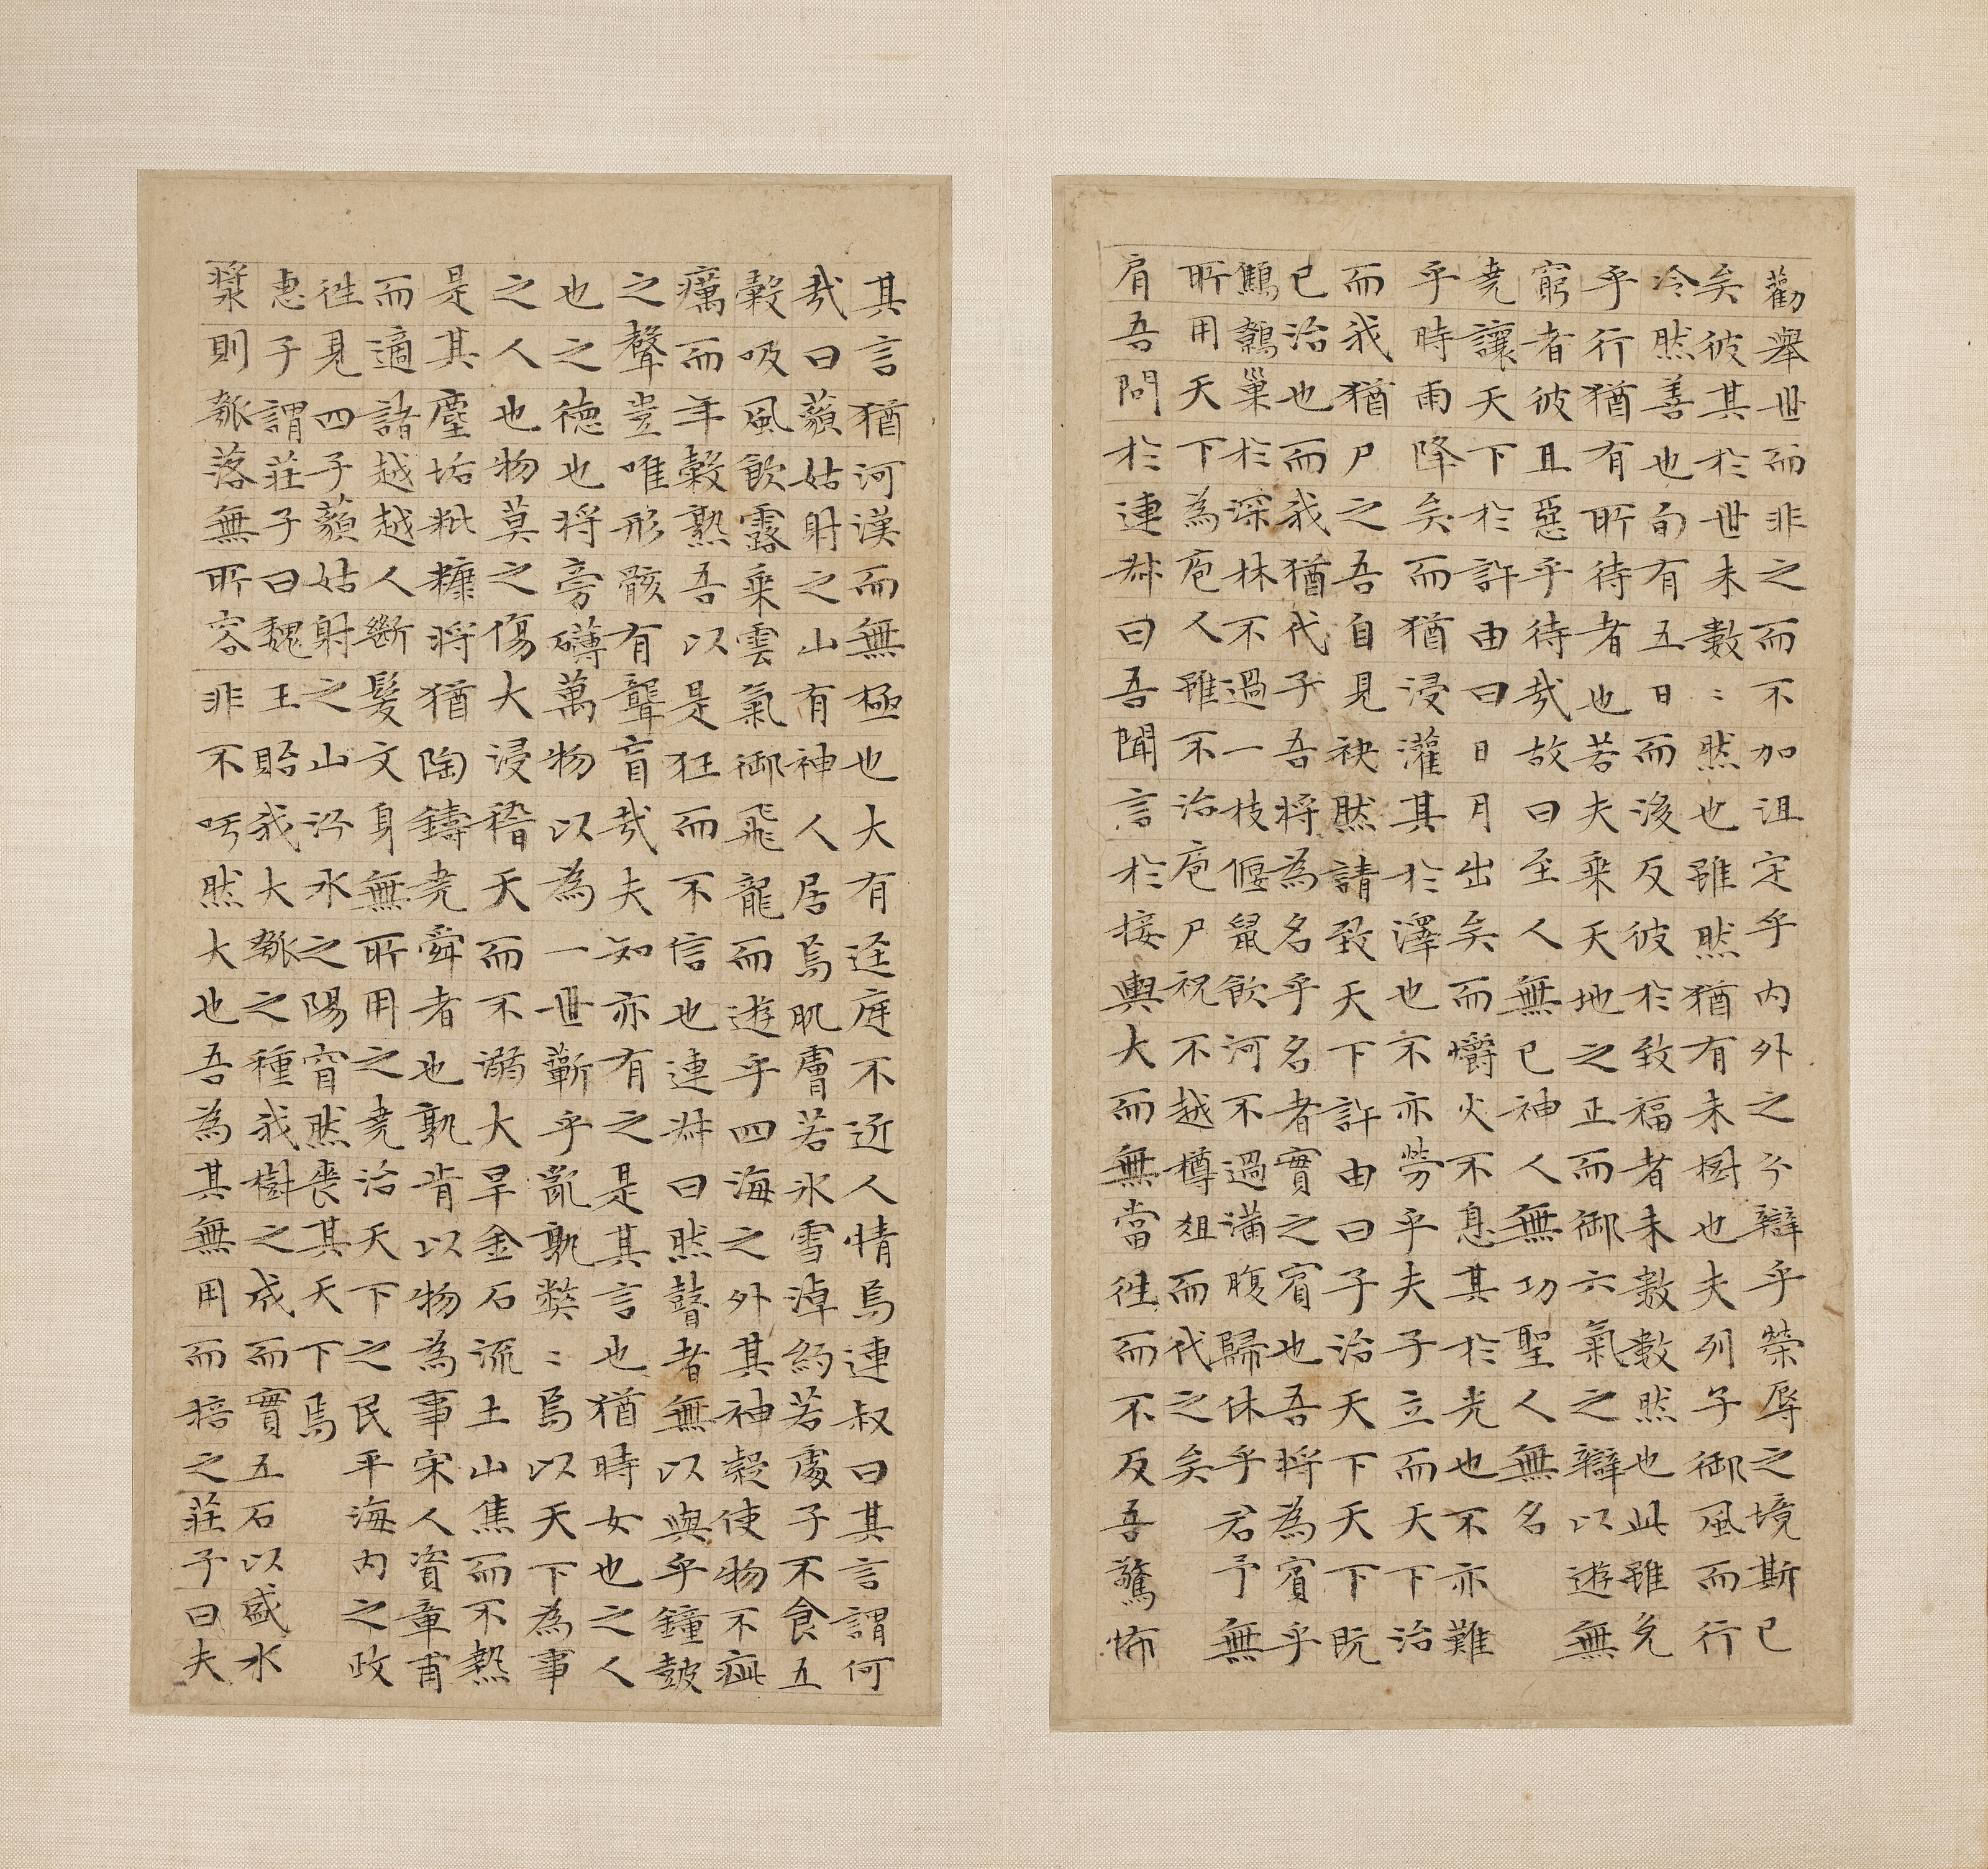 勸舉世而非之而不加沮定乎內外之分辯乎榮辱之境斯已
矣彼其於世未數〻然也雖然猶有未樹也夫列子御風而行
冷然善也旬有五日而後反彼於致福者未數數然也此雖免
乎行猶有所待者也若夫乘天地之正而御六氣之辯以遊無
窮者彼且惡乎待哉故曰至人無已神人無功聖人無名
堯讓天下於許由曰日月出矣而爝火不息其於光也不亦難
乎時雨降矣而猶浸灌其於澤也不亦勞乎夫子立而天下治
而我猶尸之吾自見缺然請致天下許由曰子治天下天下既
已治也而我猶代子吾將為名乎名者實之賓也吾將為賓乎
鷦鷯巢於深林不過一枝偃鼠飲河不過滿腹歸休乎君予無
所用天下為庖人雖不治庖尸祝不越樽俎而代之矣
肩吾問於連叔曰吾聞言於接輿大而無當往而不反吾驚怖
其言猶河漢而無極也大有逕庭不近人情焉連叔曰其言謂何
哉曰藐姑射之山有神人居焉肌膚若冰雪淖約若處子不食五
穀吸風飲露乘雲氣御飛龍而遊乎四海之外其神凝使物不疵
癘而年穀熟吾以是狂而不信也連叔曰然瞽者無以與乎鐘鼓
之聲豈唯形骸有聾盲哉夫知亦有之是其言也猶時女也之人
也之德也將旁礴萬物以為一世蘄乎亂孰弊〻焉以天下為事
之人也物莫之傷大浸稽天而不溺大旱金石流土山焦而不熱
是其塵垢粃糠將猶陶鑄堯舜者也孰肯以物為事宋人資章甫
而適諸越越人斷髮文身無所用之堯治天下之民平海內之政
往見四子藐姑射之山汾水之陽窅然喪其天下焉
惠子謂莊子曰魏王貽我大瓠之種我樹之成而實五石以盛水
漿則瓠落無所容非不呺然大也吾為其無用而掊之莊子曰夫